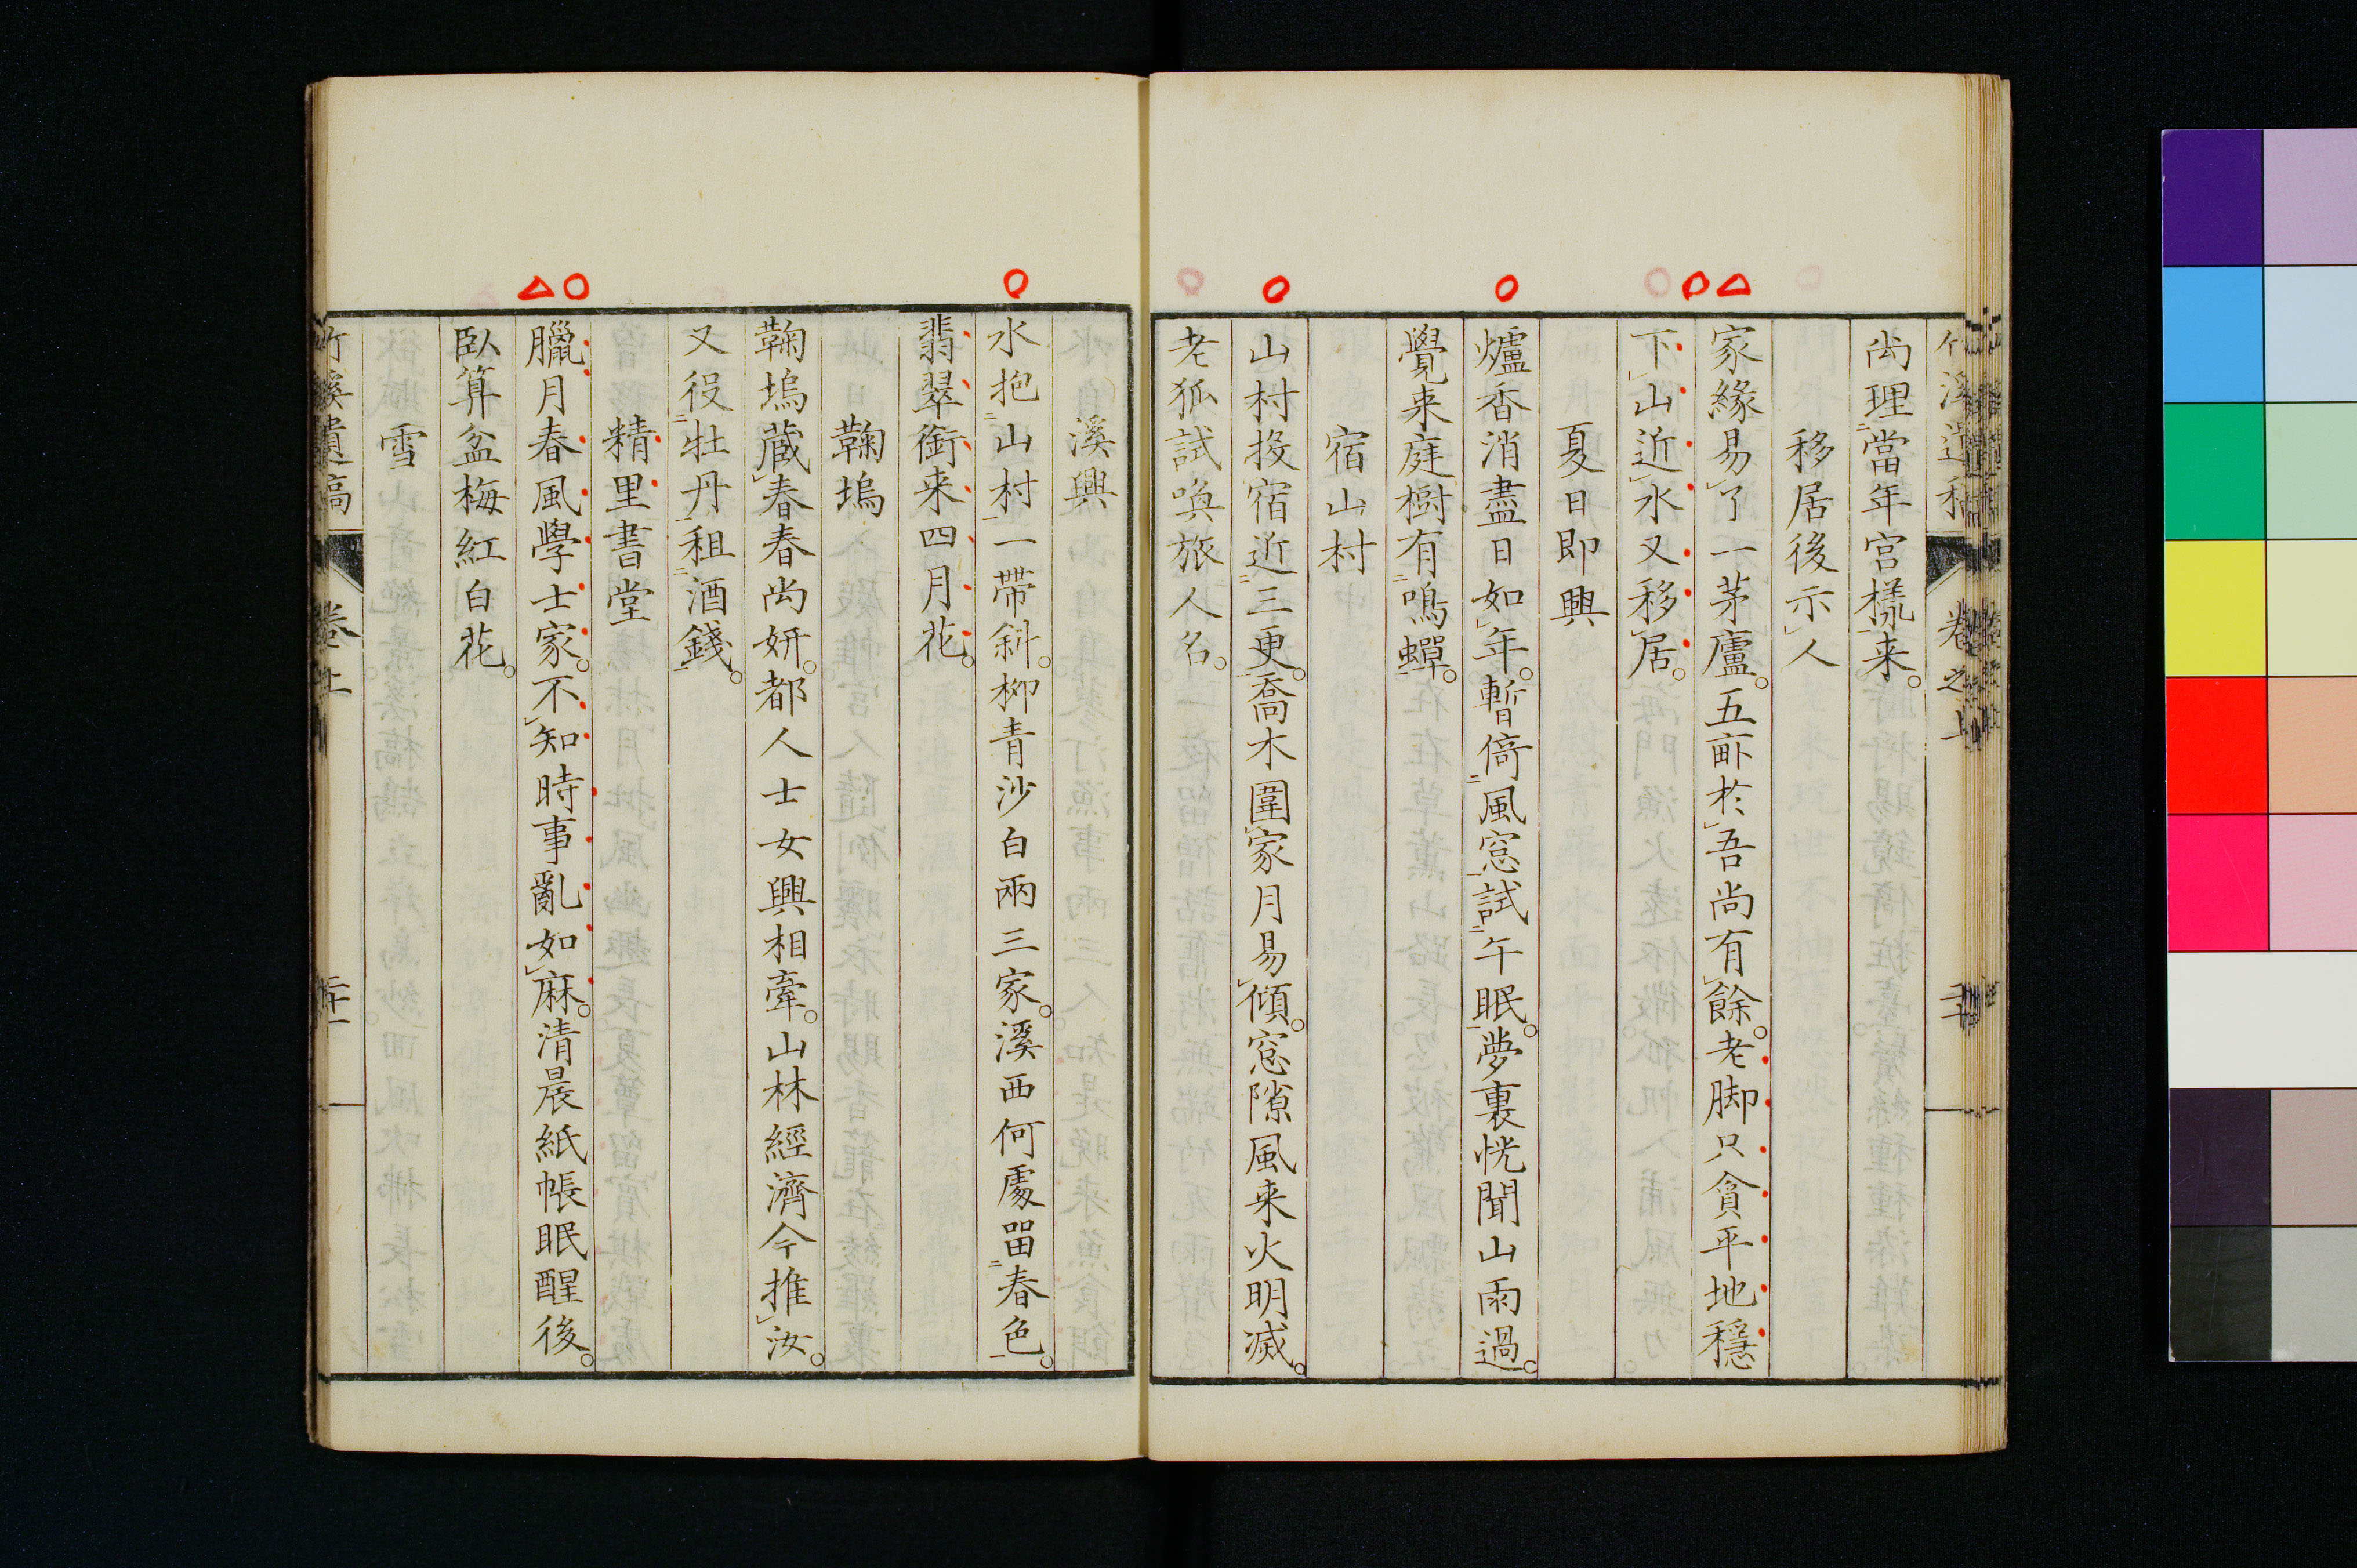 尚理當年宮樣来。
移居後示人
家緣易了一茅廬。五畝於吾尚有餘。老脚只貪平地穩
下山近水又移居。
夏日即興
爐香消盡日如年。暫倚風窓試午眠。夢裏恍聞山雨過。
覺来庭樹有鳴蟬。
宿山村
山村投宿近三更。喬木圍家月易傾。窓隙風来火明滅。
老狐試喚旅人名。
溪興
水抱山村一帶斜。柳青沙白兩三家。溪西何處留春色。
翡翠銜来四月花。
鞠塢
鞠塢蔵春春尚妍。都人士女興相牽。山林經濟今推汝。
又役牡丹租酒錢。
精里書堂
臘月春風學士家。不知時事亂如麻。清晨紙帳眠醒後。
臥算盆梅紅白花。
雪
竹溪遺稿
卷上